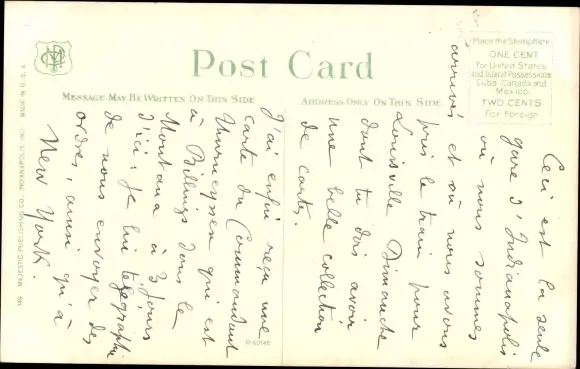 Post Card
MESSAGE MAY BE WRITTEN ON THIS SIDE
ADDRESS ONLY ON THIS SIDE.
Place the Stamp Here
ONE CENT
For United States
and Island Possessions
Cuba Canada and
Mexico.
TWO CENTS
For Foreign.
Ceci est la seule
gare d'Indianapolis
où nous sommes
arrivés et où nous avons
pris le train pour
Louisville Dimanche
dont tu dois avoir
une belle collection
de cartes.
J'ai enfin reçu une
carte du Commandant
qui est
à Billings dans le
Montana à 3 jours
d'ici. Je lui telegraphie
de nous envoyer des
ordres, ainsi qu'à
New York.
R-60146
MAJESTIC PUBLISHING CO., INDIANAPOLIS, IND. MADE IN U.S.A.